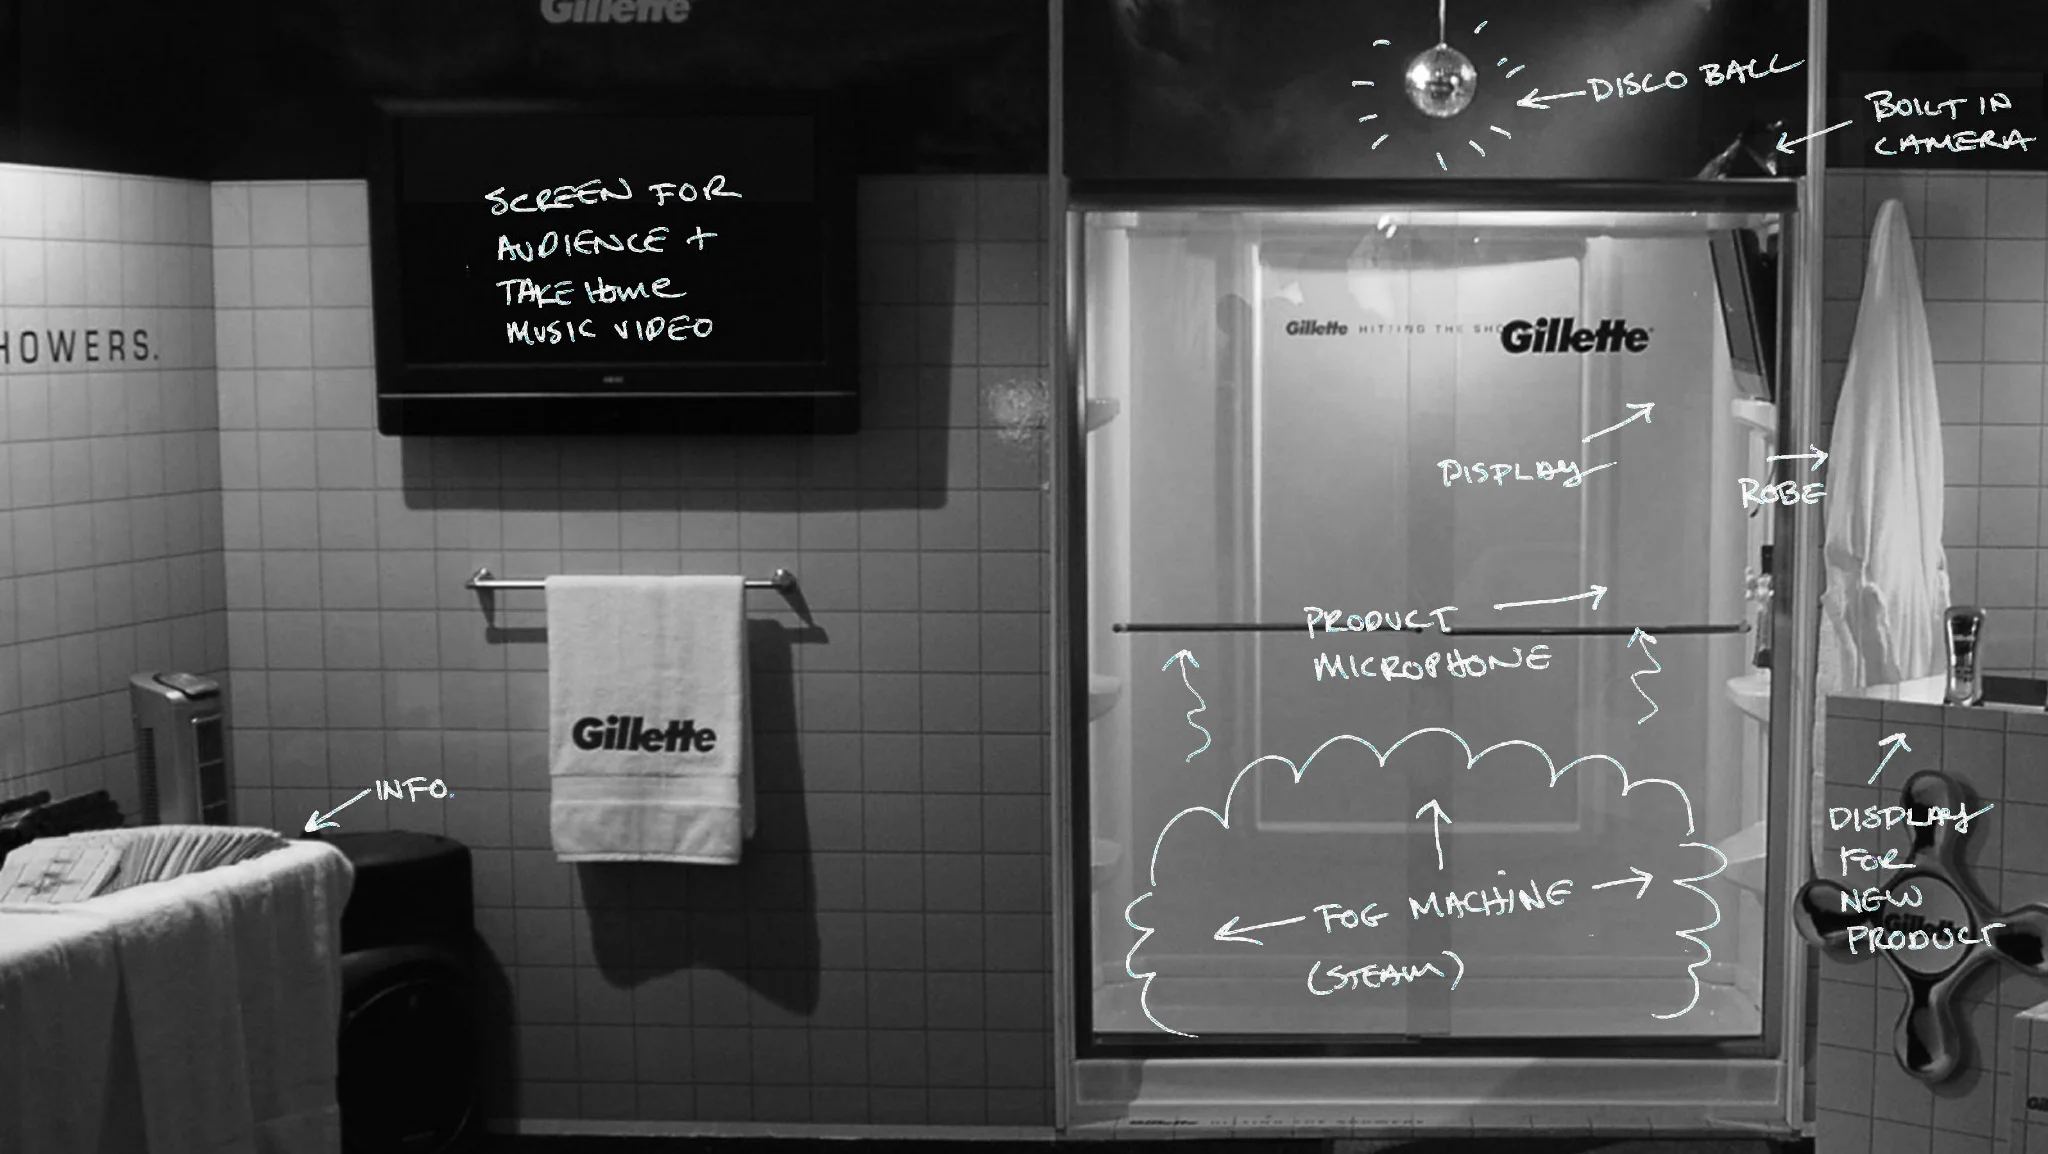 Gillette
DISCO BALL
BUILT IN
CAMERA
SCREEN FOR
AUDIENCE +
TAKE HOME
MUSIC VIDEO
HOWERS.
Gillette HITTING THE SHO
Gillette
DISPLAY
ROBE
PRODUCT
MICROPHONE
Gillette
INFO.
DISPLAY
FOR
NEW
PRODUCT
Gillette
FOG MACHINE
(STEAM)
Gillette HITTING THE SHOWERS